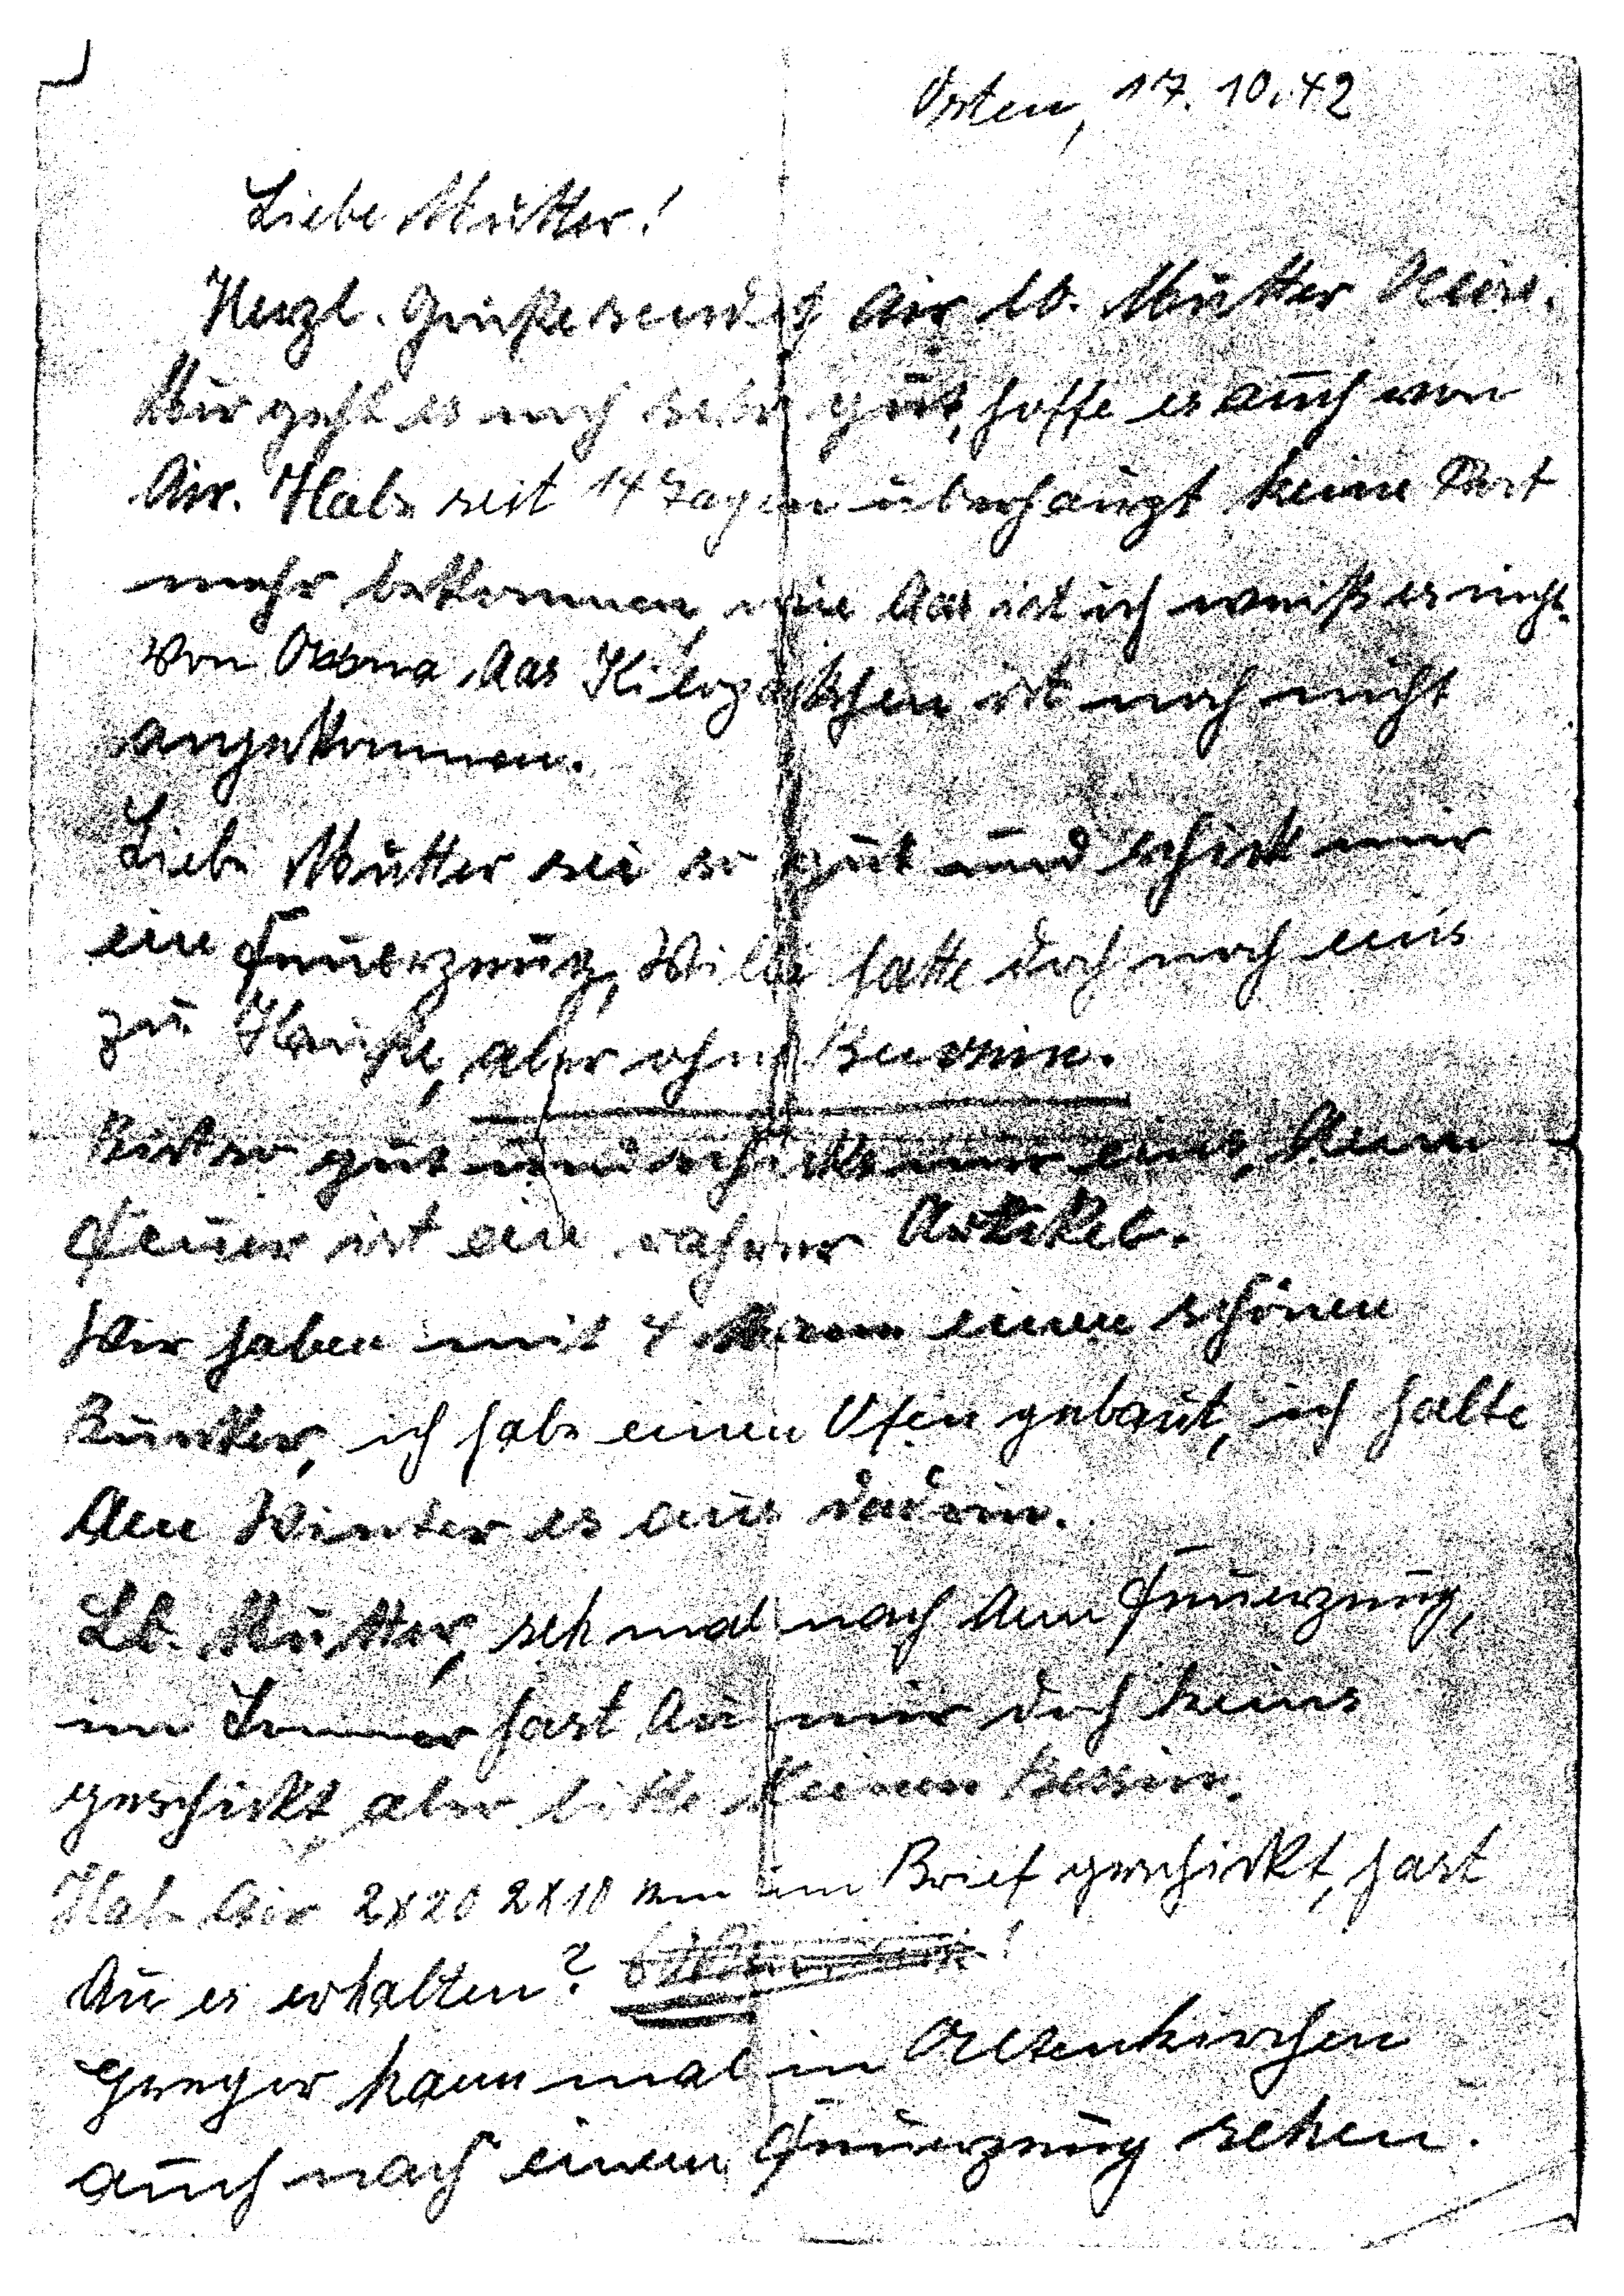 Osten, 17.10.42
Liebe Mutter!
Herzl. Grüße sendet dir lb. Mutter
Mir geht es noch sehr gut, hoffe es auch von
dir. Habe seit 14 Tagen überhaupt keine Post
mehr bekommen, wie das ist ich weiß es nicht.
Von das ist noch nicht
angekommen.
Liebe Mutter sei so gut und schick mir
ein Feuerzeug, Willi hatte doch noch eins
zu Hauße, aber ohne Benzin.
Bist so gut und schickt mir eins, denn
Feuer ist ein rahrer Artikel.
Wir haben mit 4 Mann einen schönen
Bunker, ich habe einen Ofen gebaut, ich halte
den Winter es aus dadrin.
Lb. Mutter, seh mal nach dem Feuerzeug,
im Sommer hast du mir doch keins
geschickt, aber bitte keinen Benzin.
Habe dir 2x20 2x10 im Brief geschickt, hast
du es erhalten?
Gregor kann mal in Altenkirchen
auch nach einem Feuerzeug sehen.